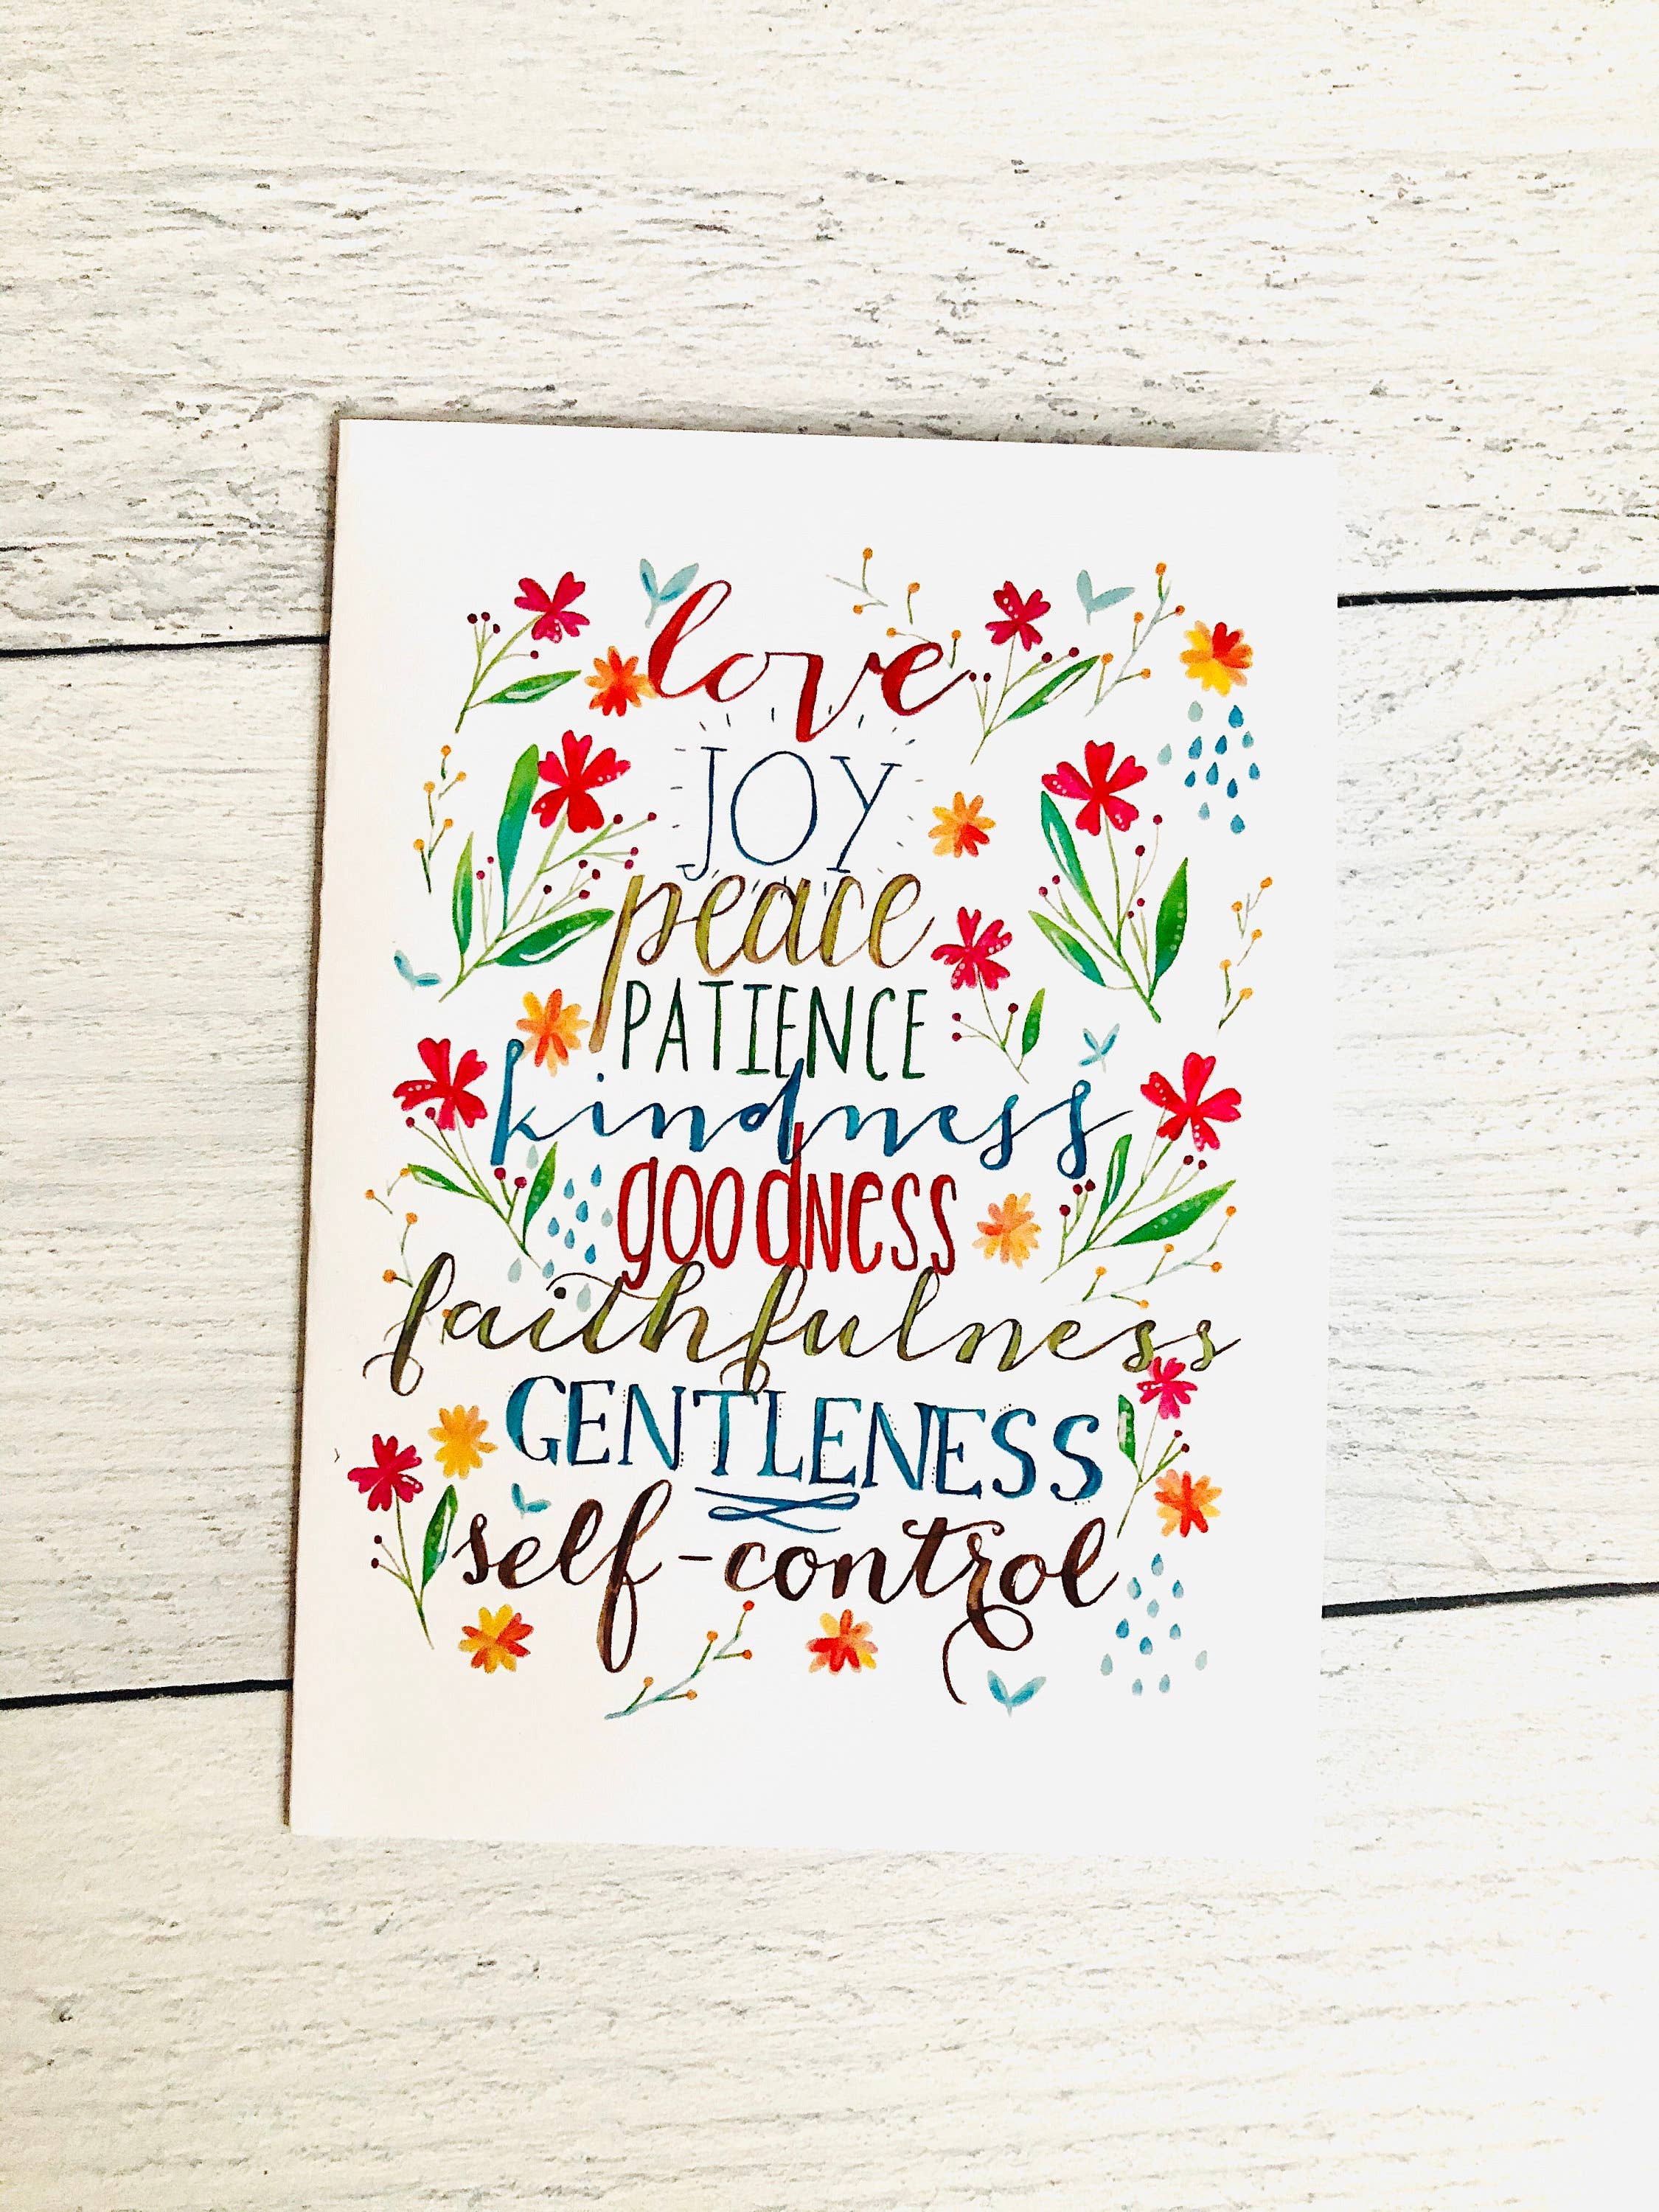 love
JOY
peace
PATIENCE
kindness
goodness
faithfulness
GENTLENESS
self-control